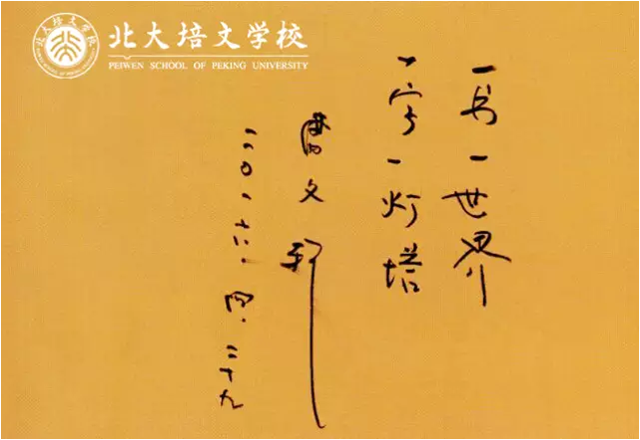 北大培文学校
北大培文学校
PEIWEN SCHOOL OF PEKING UNIVERSITY
一书一世界
一字一灯塔
曹文轩
二〇一六.四.二十九